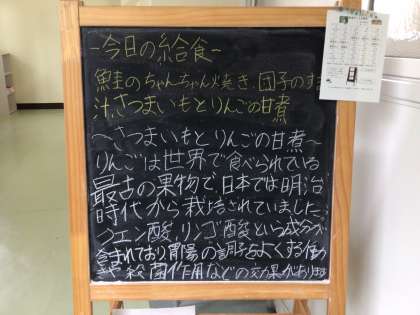 -今日の給食-
鮭のちゃんちゃん焼き、団子のすまし
汁、さつまいもとりんごの甘煮
～さつまいもとりんごの甘煮～
りんごは世界で食べられている
最古の果物で、日本では明治
時代から栽培されていました。
クエン酸、リンゴ酸という成分が
含まれており胃腸の調子をよくする働
き 殺菌作用などの効果があります